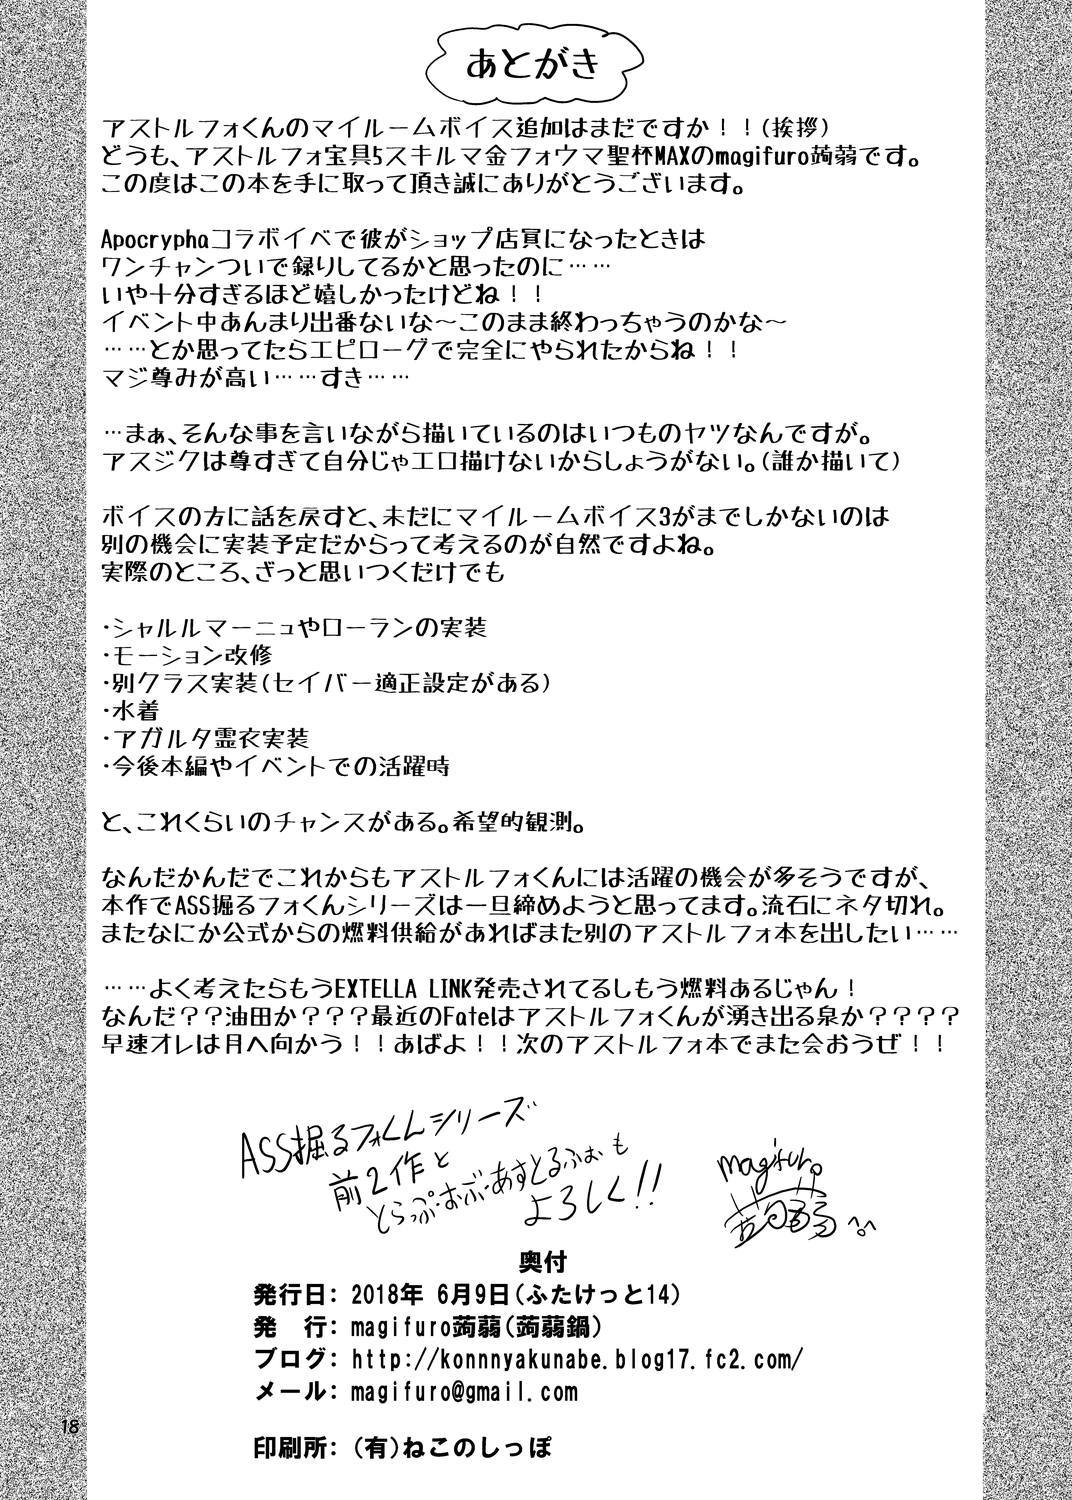 あとがき
アストルフォくんのマイルームボイス追加はまだですか！！(挨拶)
どうも、アストルフォ宝具5スキルマ金フォウマ聖杯MAXのmagifuro蒟蒻です。
この度はこの本を手に取って頂き誠にありがとうございます。
Apocryphaコラボイベで彼がショップ店員になったときは
ワンチャンついで録りしてるかと思ったのに……
いや十分すぎるほど嬉しかったけどね！！
イベント中あんまり出番ないな～このまま終わっちゃうのかな～
……とか思ってたらエピローグで完全にやられたからね！！
マジ尊みが高い……すき……
…まぁ、そんな事を言いながら描いているのはいつものヤツなんですが。
アスジクは尊すぎて自分じゃエロ描けないからしょうがない。(誰か描いて)
ボイスの方に話を戻すと、未だにマイルームボイス3がまでしかないのは
別の機会に実装予定だからって考えるのが自然ですよね。
実際のところ、ざっと思いつくだけでも
・シャルルマーニュやローランの実装
・モーション改修
・別クラス実装(セイバー適正設定がある)
・水着
・アガルタ霊衣実装
・今後本編やイベントでの活躍時
と、これくらいのチャンスがある。希望的観測。
なんだかんだでこれからもアストルフォくんには活躍の機会が多そうですが、
本作でASS掘るフォくんシリーズは一旦締めようと思ってます。流石にネタ切れ。
またなにか公式からの燃料供給があればまた別のアストルフォ本を出したい……
……よく考えたらもうEXTELLA LINK発売されてるしもう燃料あるじゃん！
なんだ？？油田か？？？最近のFateはアストルフォくんが湧き出る泉か？？？？
早速オレは月へ向かう！！あばよ！！次のアストルフォ本でまた会おうぜ！！
ASS掘るフォくんシリーズ
前2作と
とらっぷ・おぶ・あすとるふぉも
よろしく!!
magifuro
蒟蒻
奥付
発行日: 2018年 6月9日(ふたけっと14)
発　行: magifuro蒟蒻(蒟蒻鍋)
ブログ: http://konnnyakunabe.blog17.fc2.com/
メール: magifuro@gmail.com
印刷所: (有)ねこのしっぽ
18